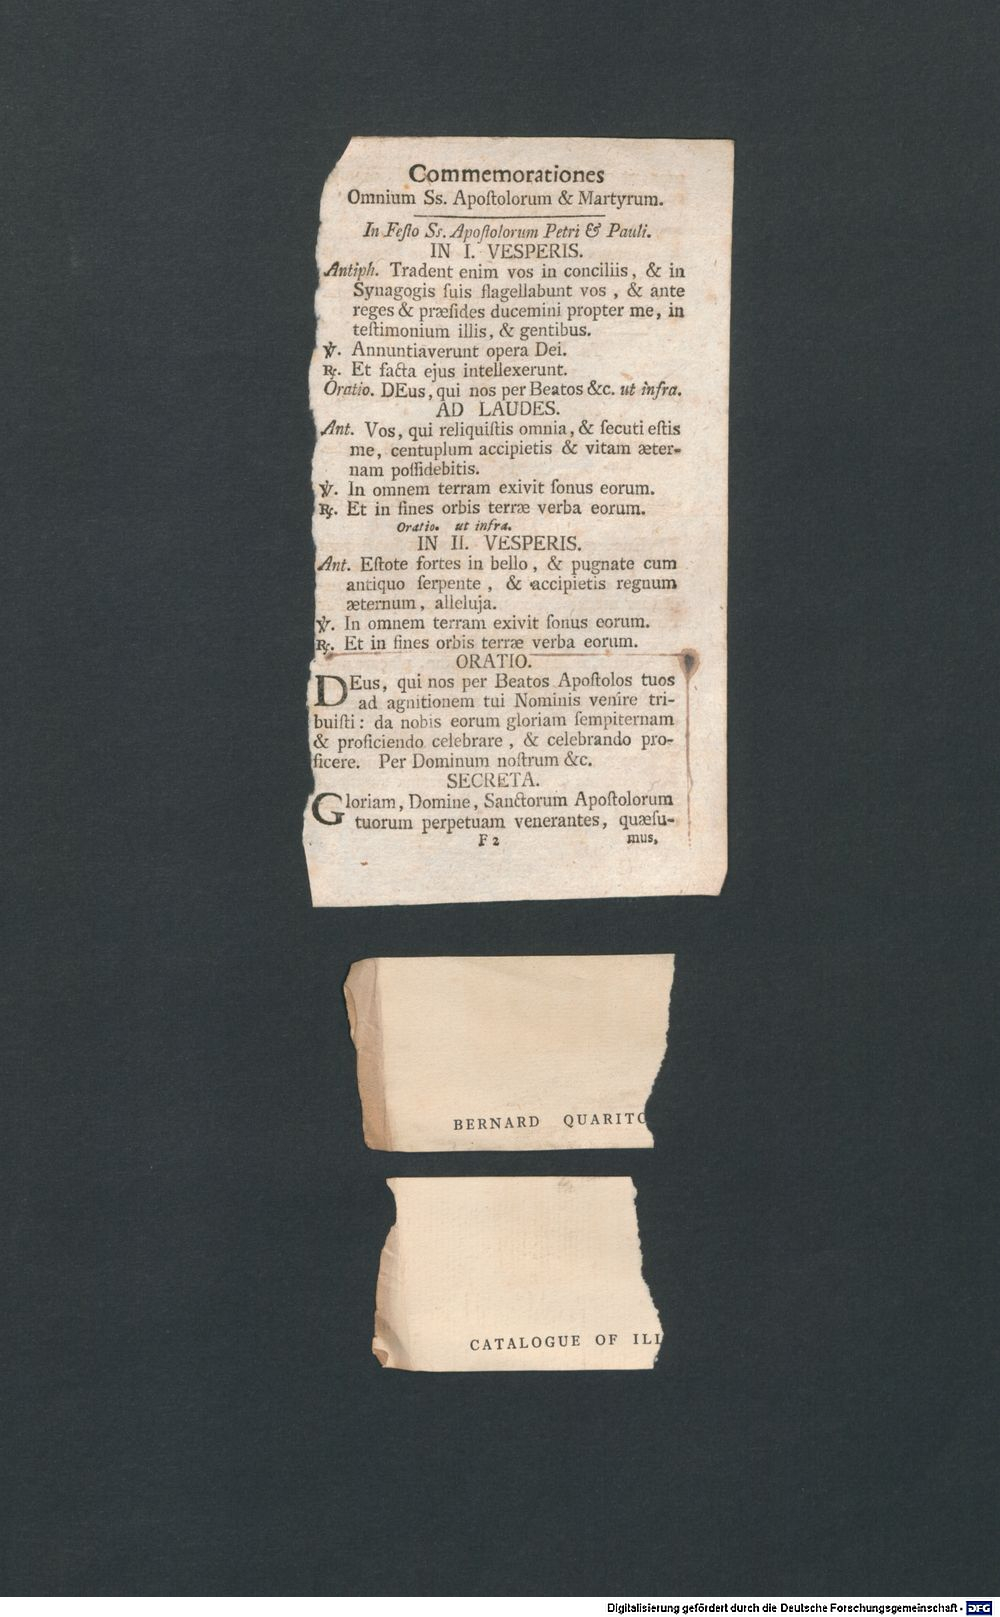 Commemorationes
Omnium Ss. Apoſtolorum & Martyrum.
In Feſto Ss. Apoſtolorum Petri & Pauli.
IN I. VESPERIS.
Antiph. Tradent enim vos in conciliis, & in
Synagogis ſuis flagellabunt vos, & ante
reges & præſides ducemini propter me, in
teſtimonium illis, & gentibus.
℣. Annuntiaverunt opera Dei.
℟. Et facta ejus intellexerunt.
Oratio. DEus, qui nos per Beatos &c. ut infra.
AD LAUDES.
Ant. Vos, qui reliquiſtis omnia, & ſecuti eſtis
me, centuplum accipietis & vitam æter-
nam poſſidebitis.
℣. In omnem terram exivit ſonus eorum.
℟. Et in fines orbis terræ verba eorum.
Oratio. ut infra.
IN II. VESPERIS.
Ant. Eſtote fortes in bello, & pugnate cum
antiquo ſerpente, & accipietis regnum
æternum, alleluja.
℣. In omnem terram exivit ſonus eorum.
℟. Et in fines orbis terræ verba eorum.
ORATIO.
DEus, qui nos per Beatos Apoſtolos tuos
ad agnitionem tui Nominis venire tri-
buiſti: da nobis eorum gloriam ſempiternam
& proficiendo celebrare, & celebrando pro-
ficere. Per Dominum noſtrum &c.
SECRETA.
Gloriam, Domine, Sanctorum Apoſtolorum
tuorum perpetuam venerantes, quæſu-
F 2 mus,
BERNARD QUARITC
CATALOGUE OF ILL
Digitalisierung gefördert durch die Deutsche Forschungsgemeinschaft - DFG